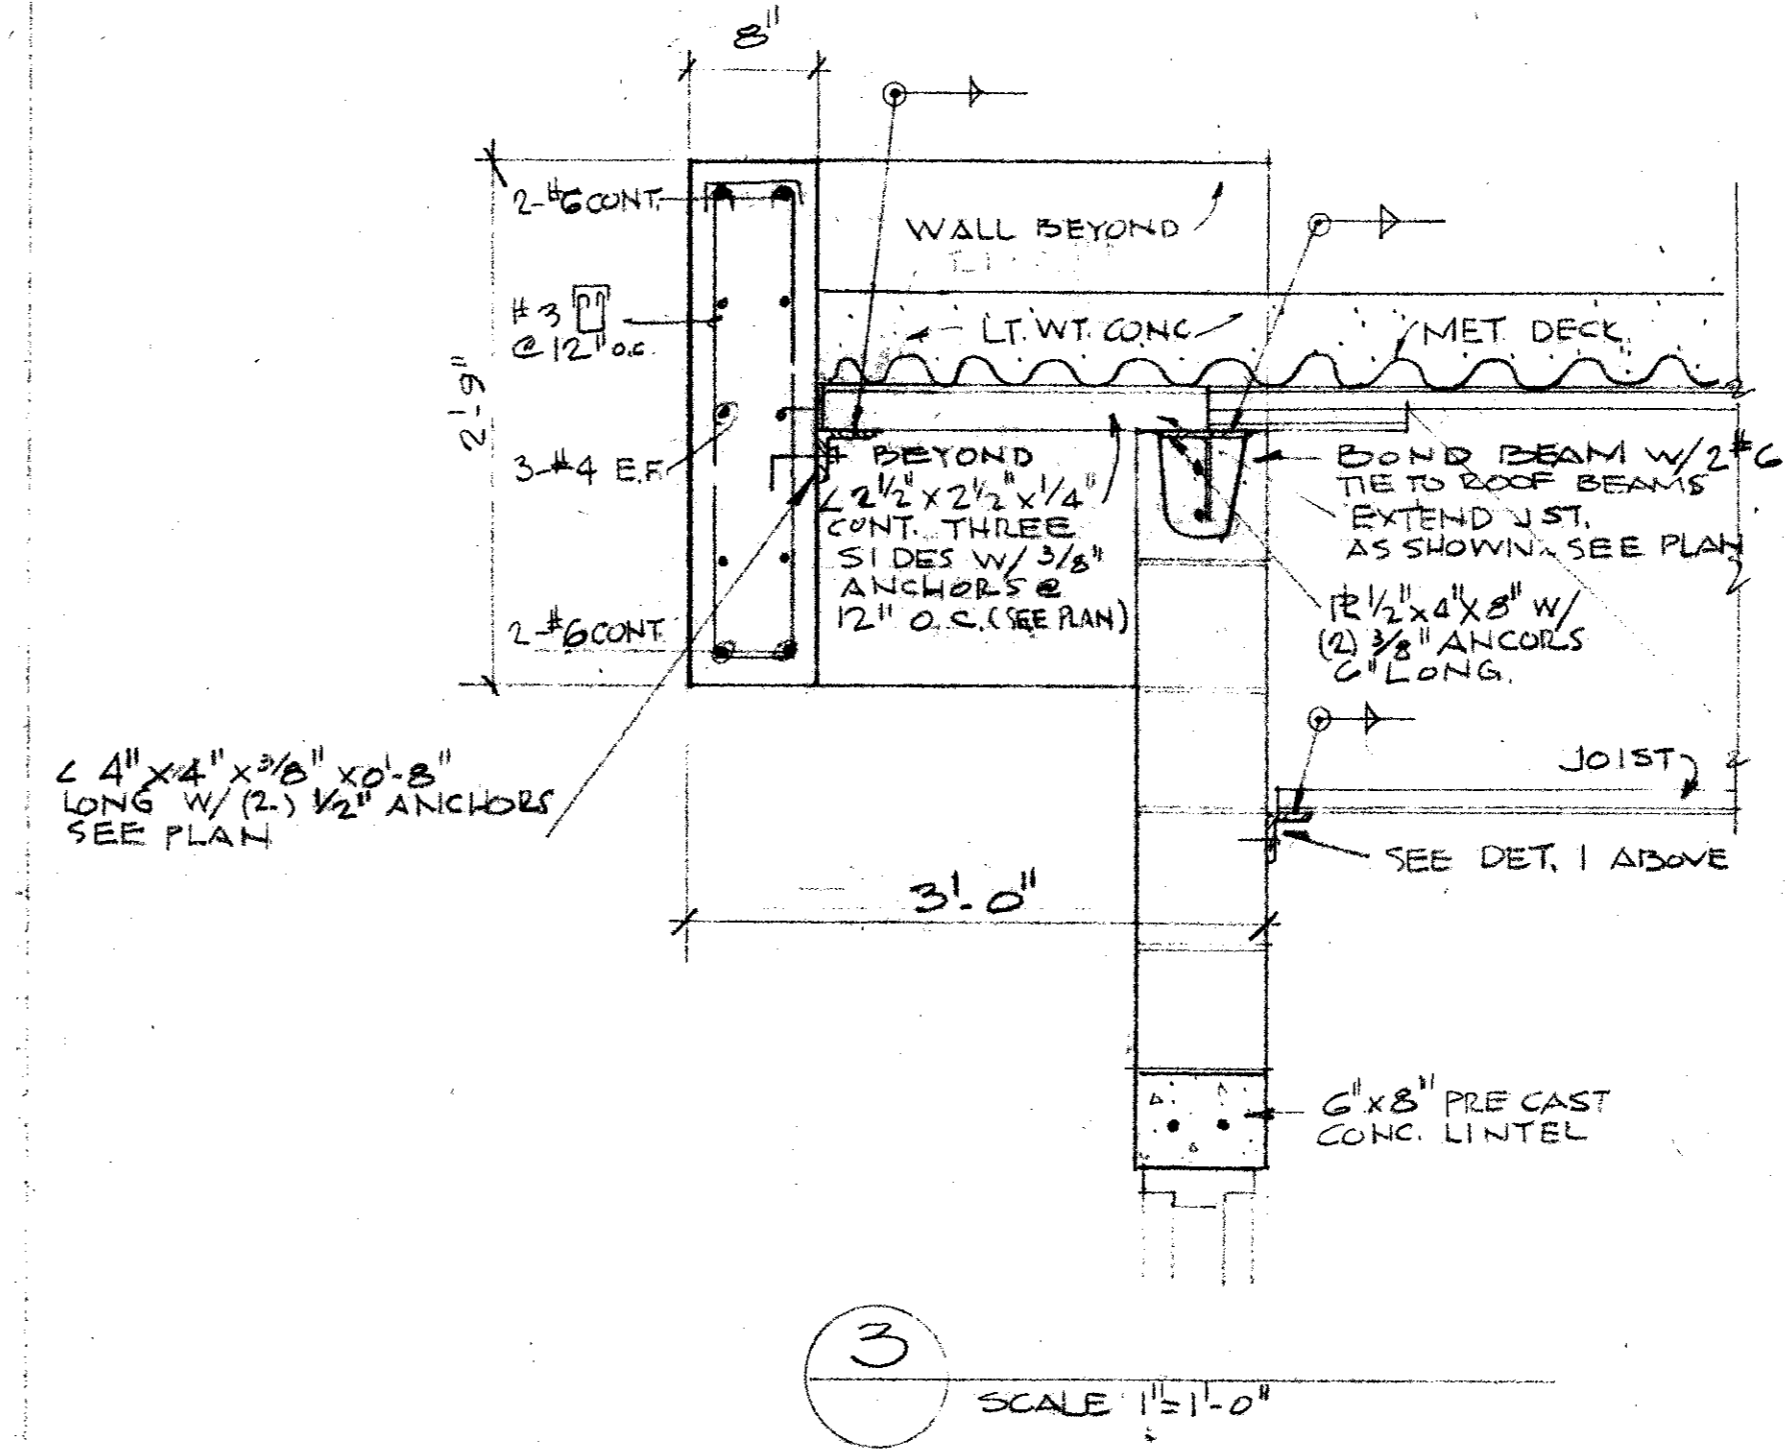 8"
2-#6 CONT.
WALL BEYOND
#3
@ 12" o.c.
LT. WT. CONC
MET. DECK
2'-9"
3-#4 E.F.
BEYOND
∠ 2 1/2" x 2 1/2" x 1/4"
CONT. THREE
SIDES W/ 3/8"
ANCHORS @
12" O.C. (SEE PLAN)
BOND BEAM W/2 #6
TIE TO ROOF BEAMS
EXTEND JST.
AS SHOWN. SEE PLAN
2-#6 CONT.
PL 1/2" x 4" x 8" W/
(2) 3/8" ANCORS
6" LONG.
∠ 4" x 4" x 3/8" x 0'-8"
LONG W/ (2) 1/2" ANCHORS
SEE PLAN
JOIST
SEE DET. 1 ABOVE
3'-0"
6" x 8" PRE CAST
CONC. LINTEL
3
SCALE 1"=1'-0"